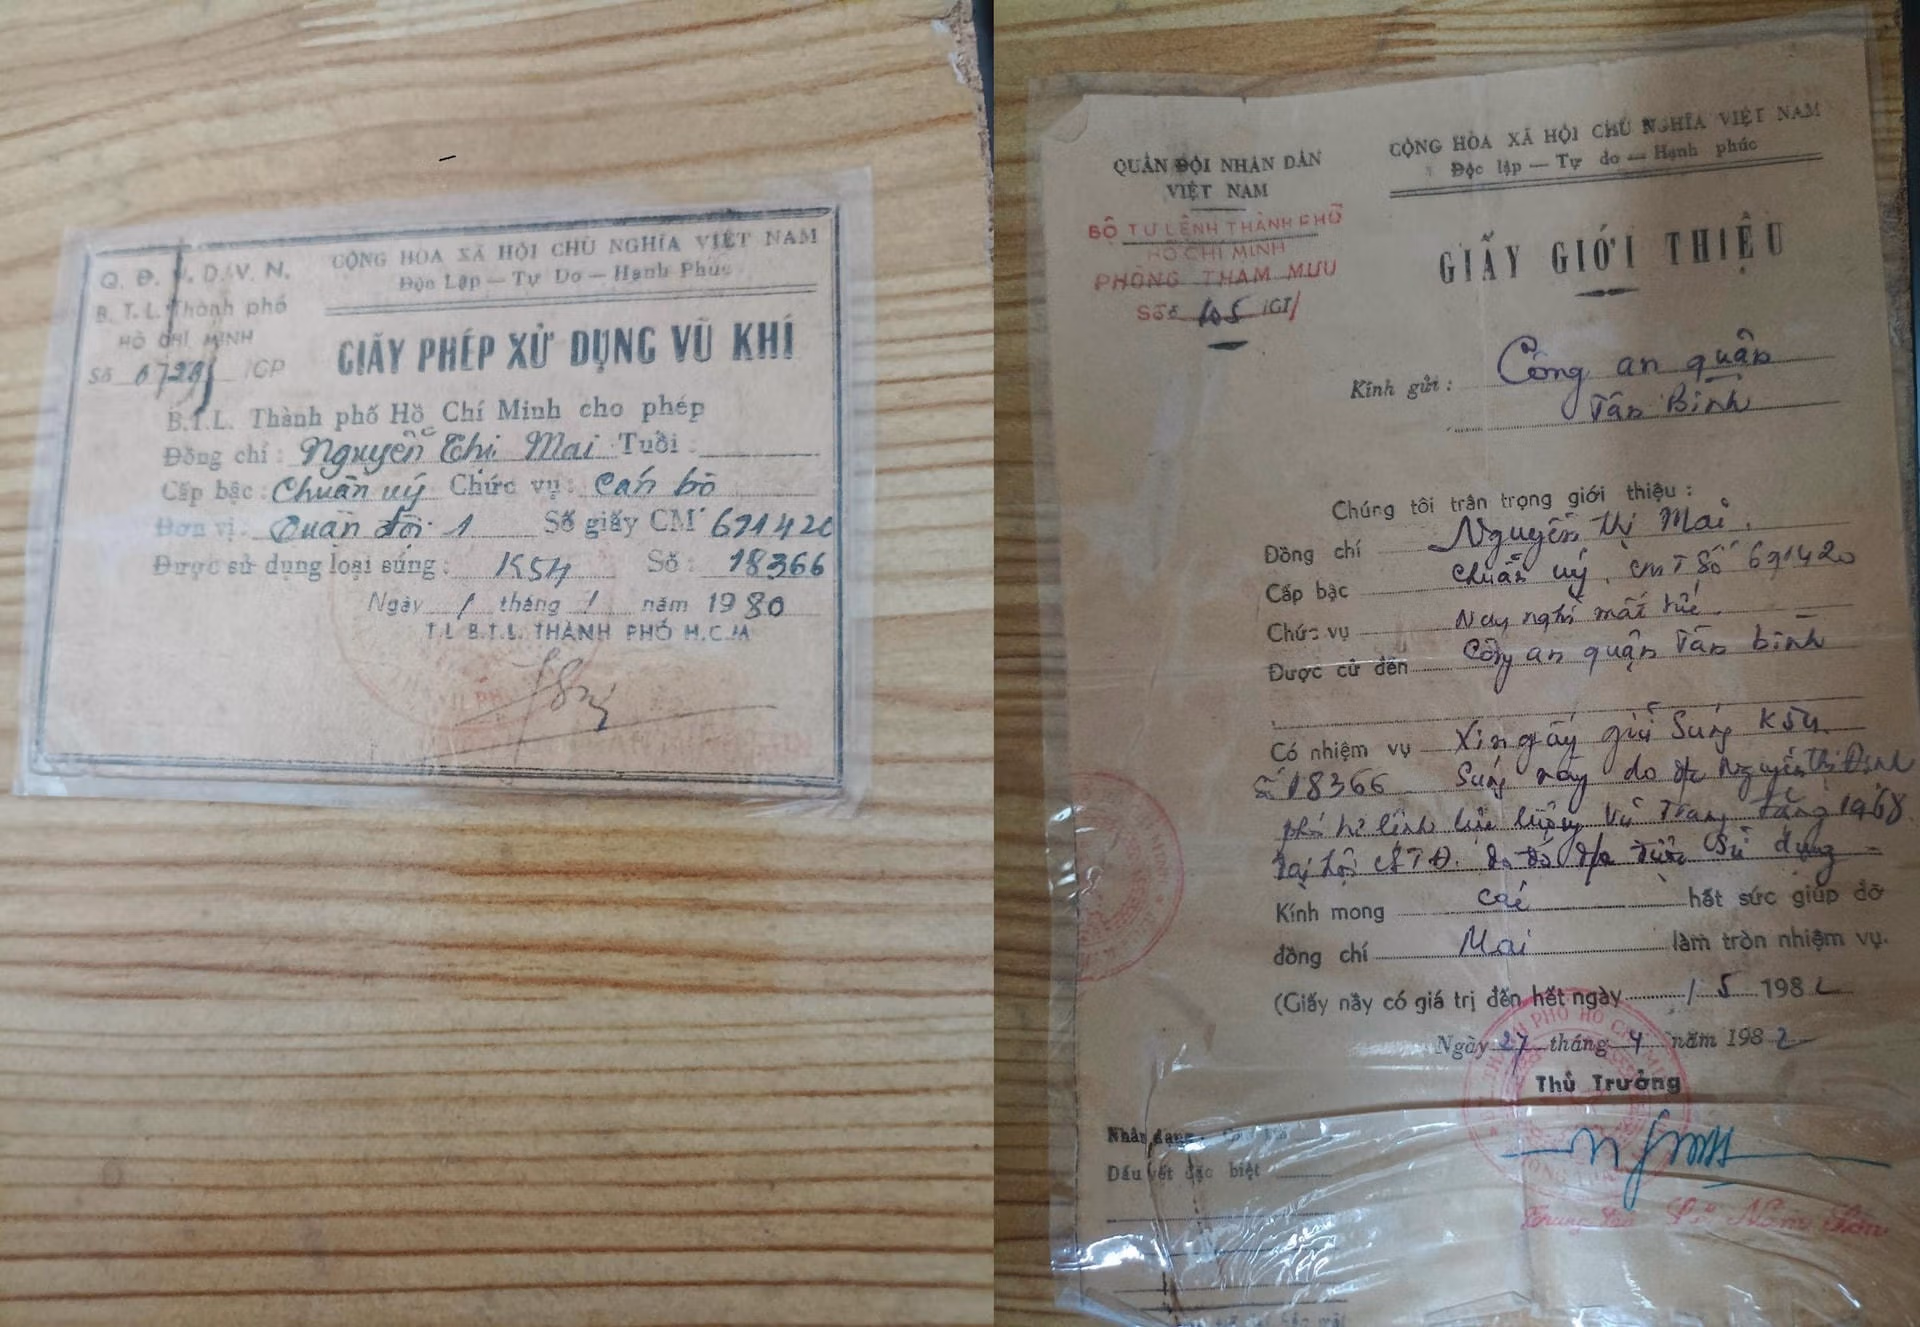 Q. Đ. N. D. V. N.
B. T. L. Thành phố
HỒ CHÍ MINH
Số /GP
CỘNG HÒA XÃ HỘI CHỦ NGHĨA VIỆT NAM
Độc Lập — Tự Do — Hạnh Phúc
GIẤY PHÉP XỬ DỤNG VŨ KHÍ
B.T.L. Thành phố Hồ Chí Minh cho phép
Đồng chí : Nguyễn Thị Mai Tuổi :
Cấp bậc : Chuẩn uý Chức vụ : Cán bộ
Đơn vị : Quân đội 1 Số giấy CM 671420
Được sử dụng loại súng : K54 Số : 18366
Ngày 1 tháng 1 năm 1980
T.L B.T.L. THÀNH PHỐ H.C.M
QUÂN ĐỘI NHÂN DÂN
VIỆT NAM
BỘ TƯ LỆNH THÀNH PHỐ
HỒ CHÍ MINH
PHÒNG THAM MƯU
Số: 105 /GT/
CỘNG HÒA XÃ HỘI CHỦ NGHĨA VIỆT NAM
Độc lập — Tự do — Hạnh phúc
GIẤY GIỚI THIỆU
Kính gửi : Công an quận
Tân Bình
Chúng tôi trân trọng giới thiệu :
Đồng chí Nguyễn thị Mai.
Cấp bậc chuẩn uý, CMT Số 691420
Chức vụ Nay nghỉ mất
Được cử đến Công an quận Tân bình
Có nhiệm vụ Xin giấy giữ Súng K54
Số 18366 Súng này do đ/c Nguyễn Thị Định
phó tư lệnh lực lượng Vũ Trang tặng 1968
tại hội do đó đ/c được Sử dụng
Kính mong các hết sức giúp đỡ
đồng chí Mai làm tròn nhiệm vụ.
(Giấy nầy có giá trị đến hết ngày 1 5 1982
Ngày 27 tháng 4 năm 1982
Thủ Trưởng
Nhân dạng :
Dấu vết đặc biệt